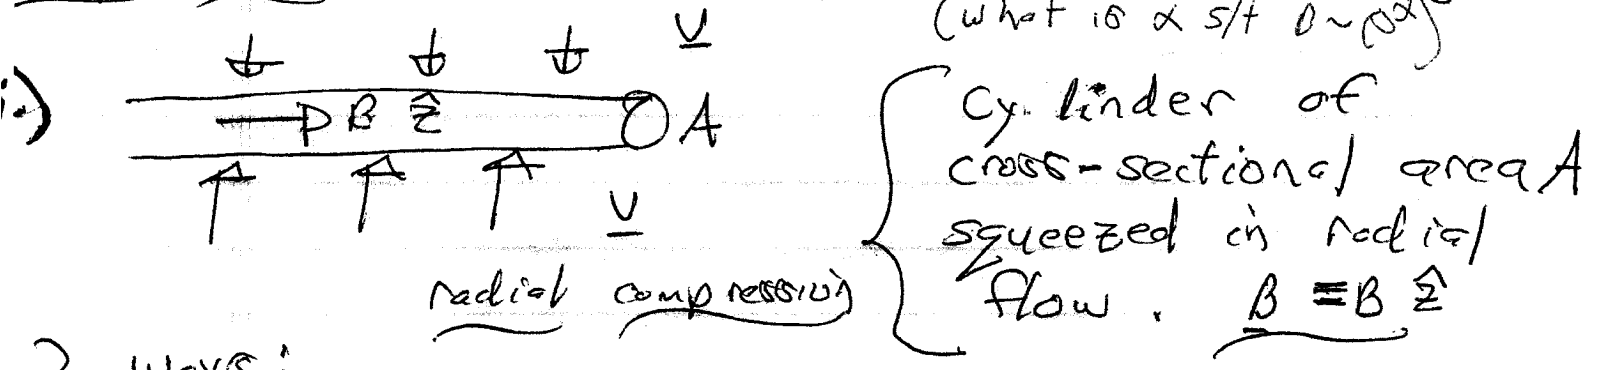 (what is α s/t B ~ ρ^α)
i.)
V
B ẑ
A
V
radial compression
Cylinder of
cross-sectional area A
squeezed in radial
flow. B ≡ B ẑ
2 ways: